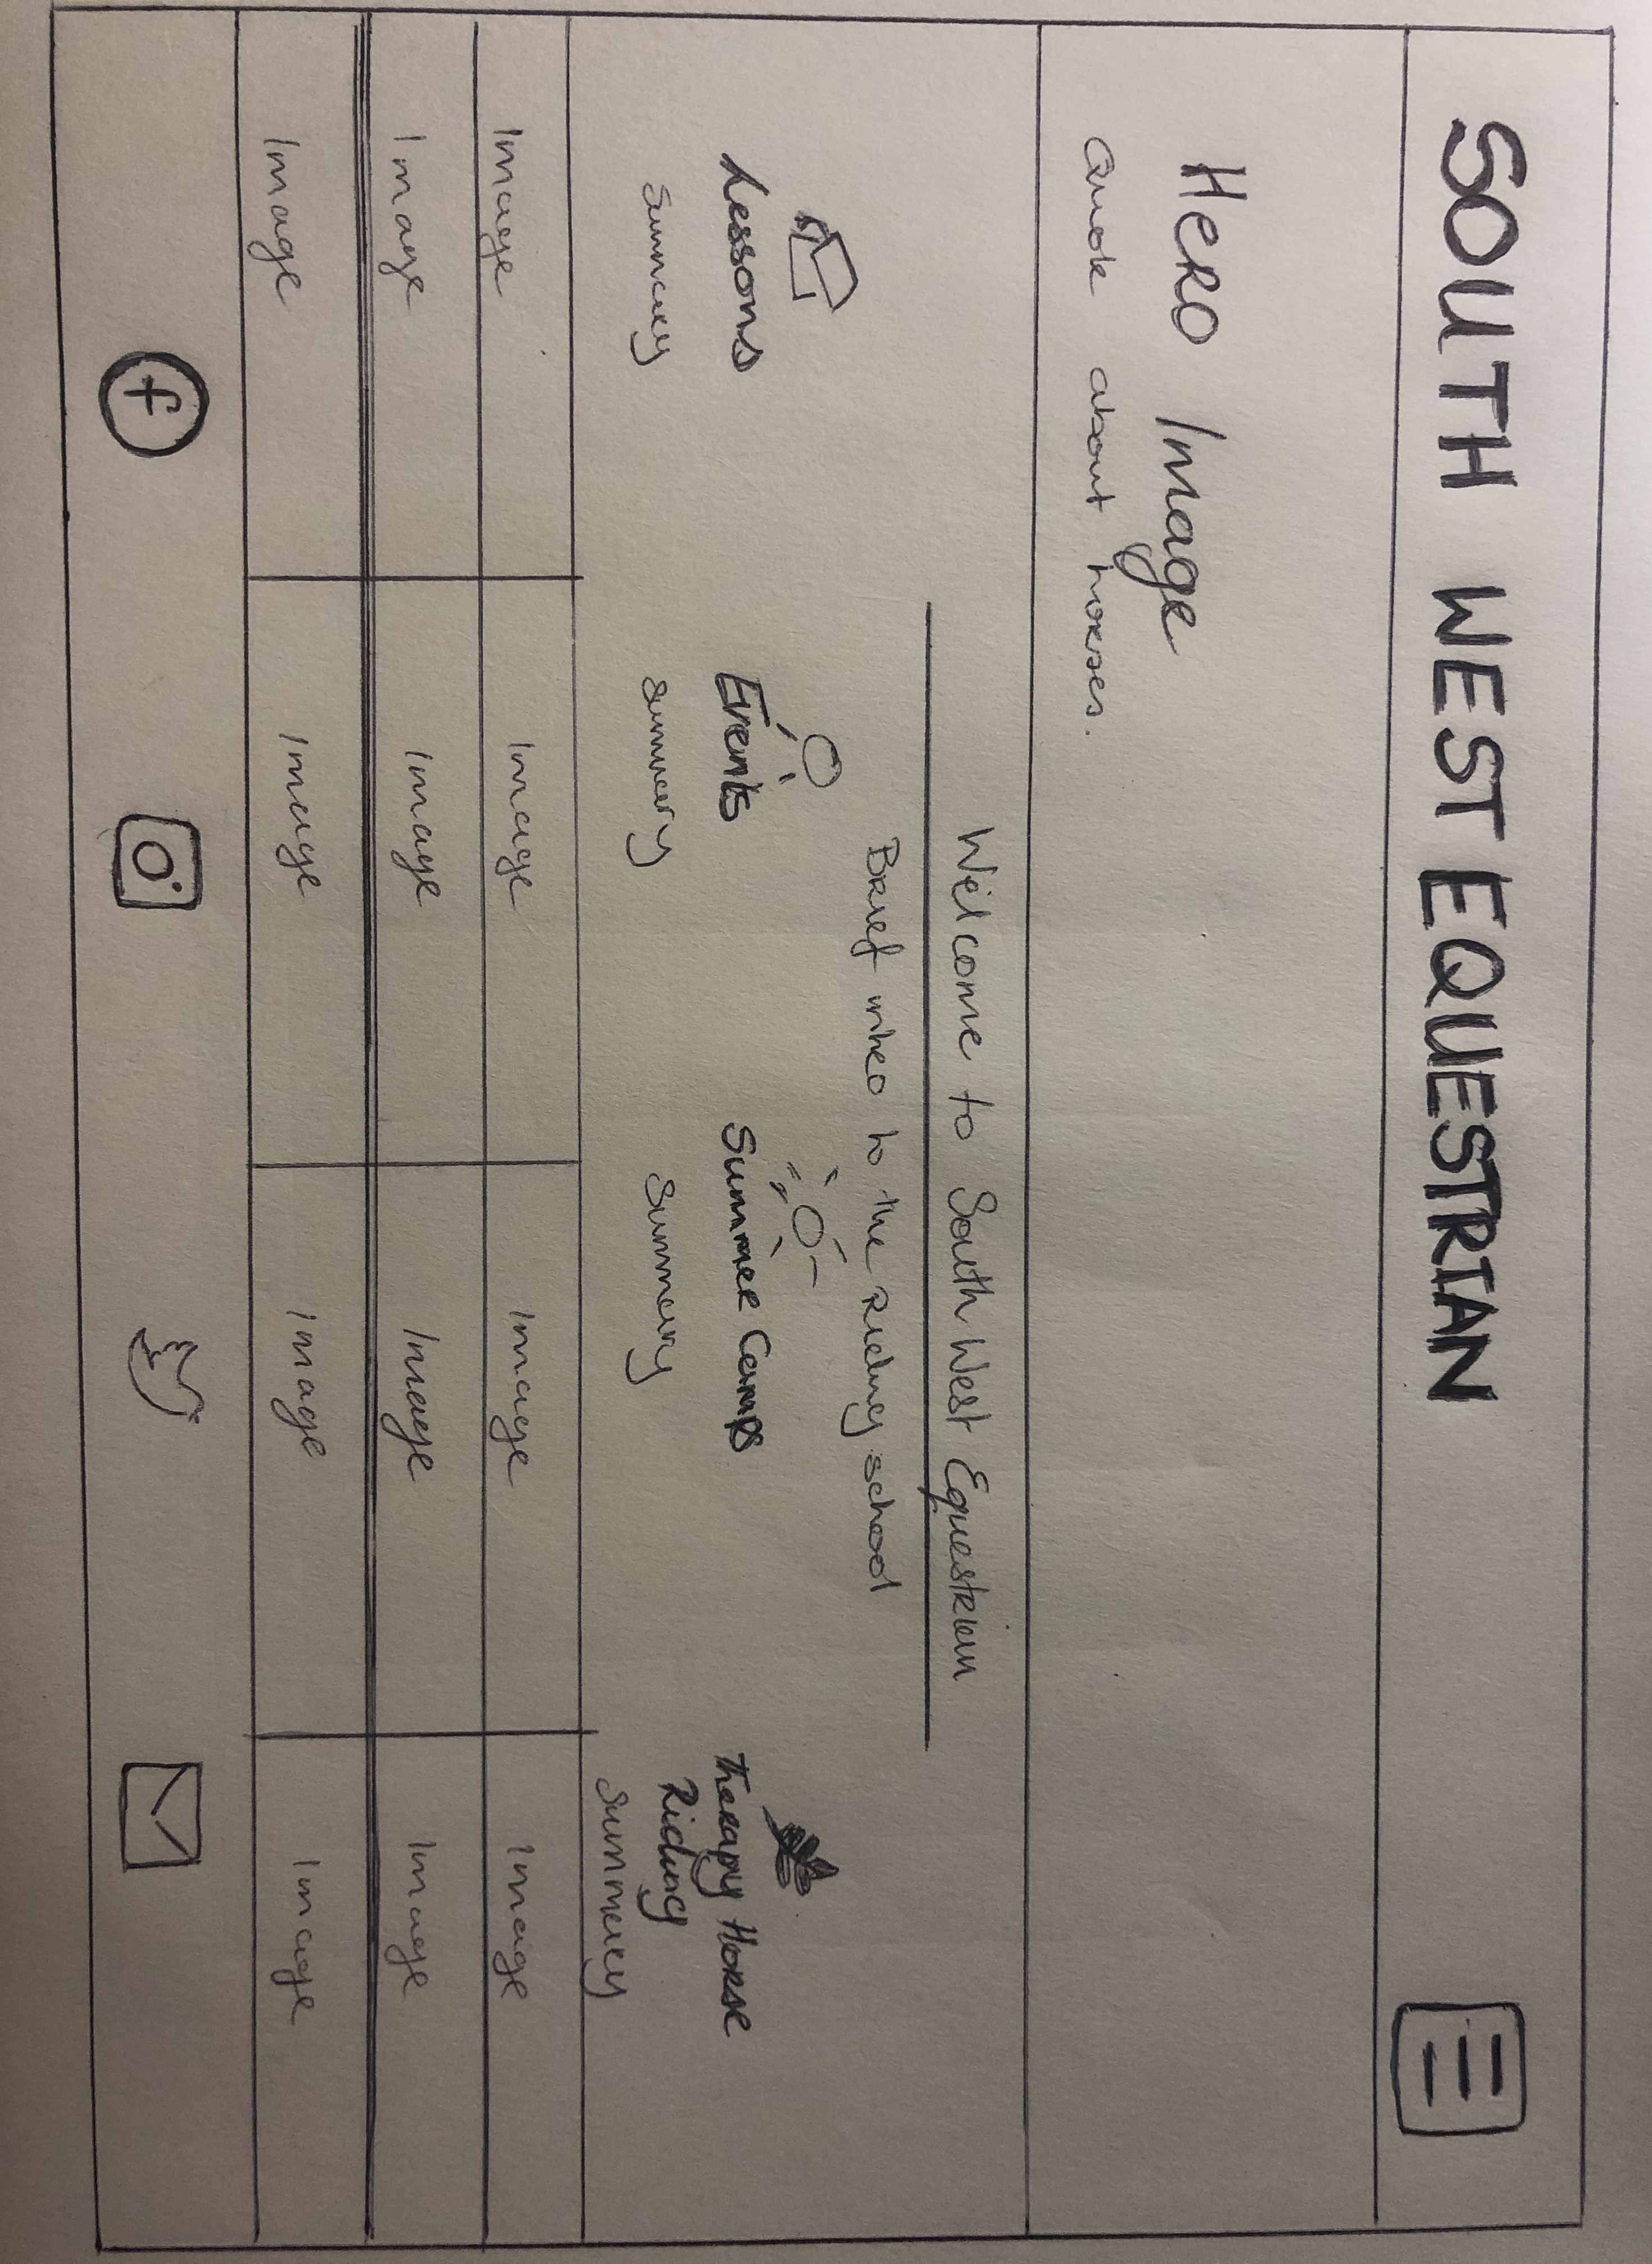 SOUTH WEST EQUESTRIAN
Hero Image
Quote about horses.
Welcome to South West Equestrian
Brief intro to the Riding school
Lessons
Events
Summer Camps
Therapy Horse
Riding
Summary
Summary
Summary
Summary
Image
Image
Image
Image
Image
Image
Image
Image
Image
Image
Image
Image
f